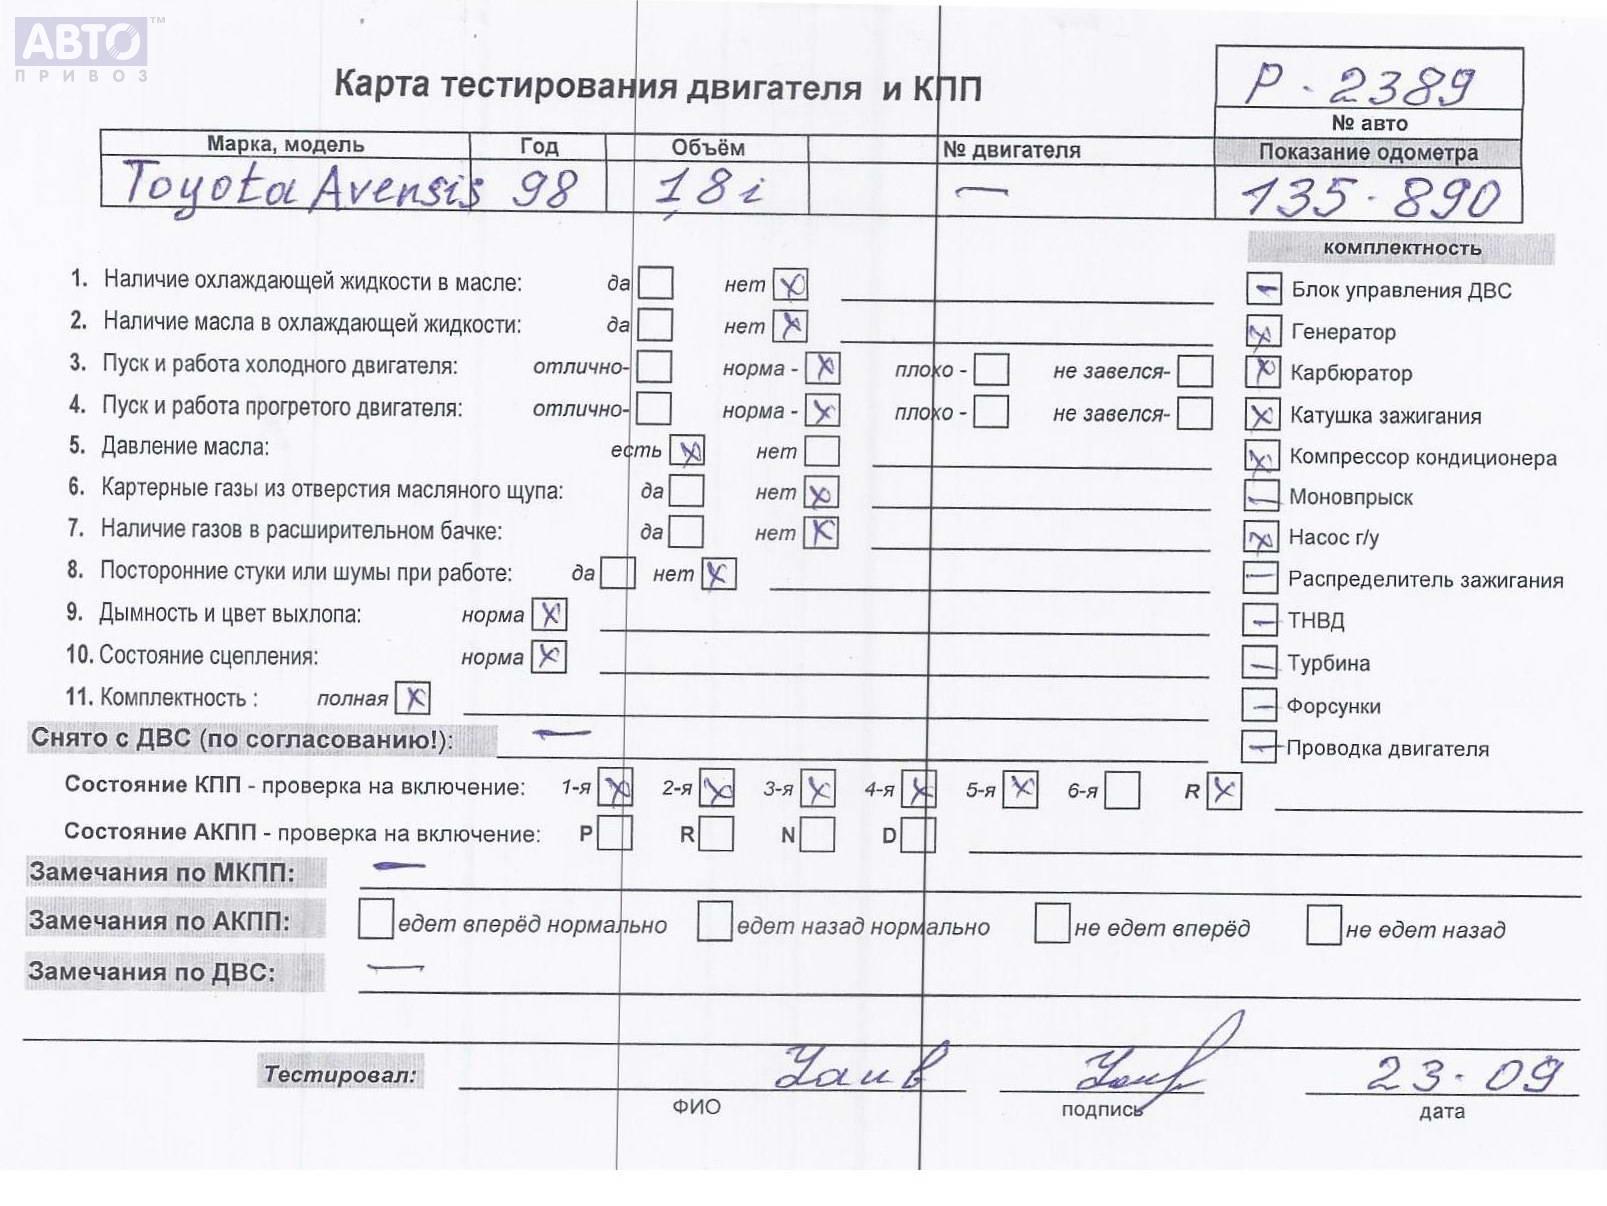 АВТО™
ПРИВОЗ
Карта тестирования двигателя и КПП
Р-2389
№ авто
Марка, модель Год Объём № двигателя Показание одометра
Toyota Avensis 98 1,8i — 135-890
комплектность
1. Наличие охлаждающей жидкости в масле: да нет x
2. Наличие масла в охлаждающей жидкости: да нет x
3. Пуск и работа холодного двигателя: отлично- норма - x плохо - не завелся-
4. Пуск и работа прогретого двигателя: отлично- норма - x плохо - не завелся-
5. Давление масла: есть x нет
6. Картерные газы из отверстия масляного щупа: да нет x
7. Наличие газов в расширительном бачке: да нет x
8. Посторонние стуки или шумы при работе: да нет x
9. Дымность и цвет выхлопа: норма x
10. Состояние сцепления: норма x
11. Комплектность : полная x
— Блок управления ДВС
x Генератор
x Карбюратор
x Катушка зажигания
x Компрессор кондиционера
— Моновпрыск
x Насос г/у
— Распределитель зажигания
— ТНВД
— Турбина
— Форсунки
— Проводка двигателя
Снято с ДВС (по согласованию!): —
Состояние КПП - проверка на включение: 1-я x 2-я x 3-я x 4-я x 5-я x 6-я R x
Состояние АКПП - проверка на включение: P R N D
Замечания по МКПП: —
Замечания по АКПП: едет вперёд нормально едет назад нормально не едет вперёд не едет назад
Замечания по ДВС: —
Тестировал: 23-09
ФИО подпись дата